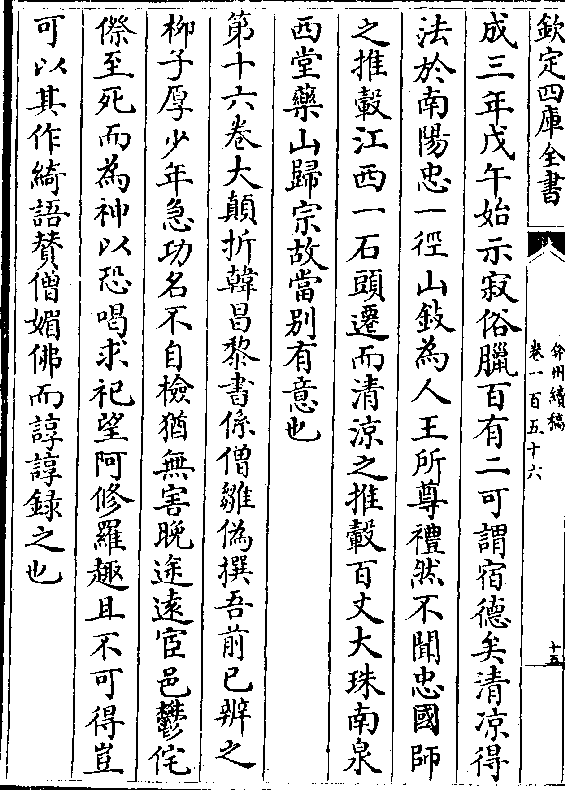 欽定四庫全書
弇州續稿
卷一百五十六
十五
成三年戊午始示寂俗臘百有二可謂宿德矣清凉得
法於南陽忠一徑山敍為人王所尊禮然不聞忠國師
之推轂江西一石頭遷而清涼之推轂百丈大珠南泉
西堂藥山歸宗故當别有意也
第十六卷大顛折韓昌黎書係僧雛偽撰吾前已辨之
栁子厚少年急功名不自檢猶無害晚途遠宦邑鬱侘
傺至死而為神以恐喝求祀望阿修羅趣且不可得豈
可以其作綺語賛僧媚佛而諄諄録之也